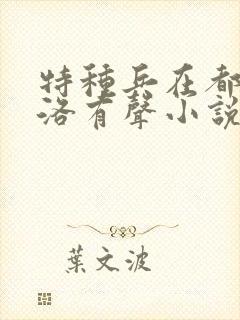 特種兵在都
洛有聲小說
葉文波